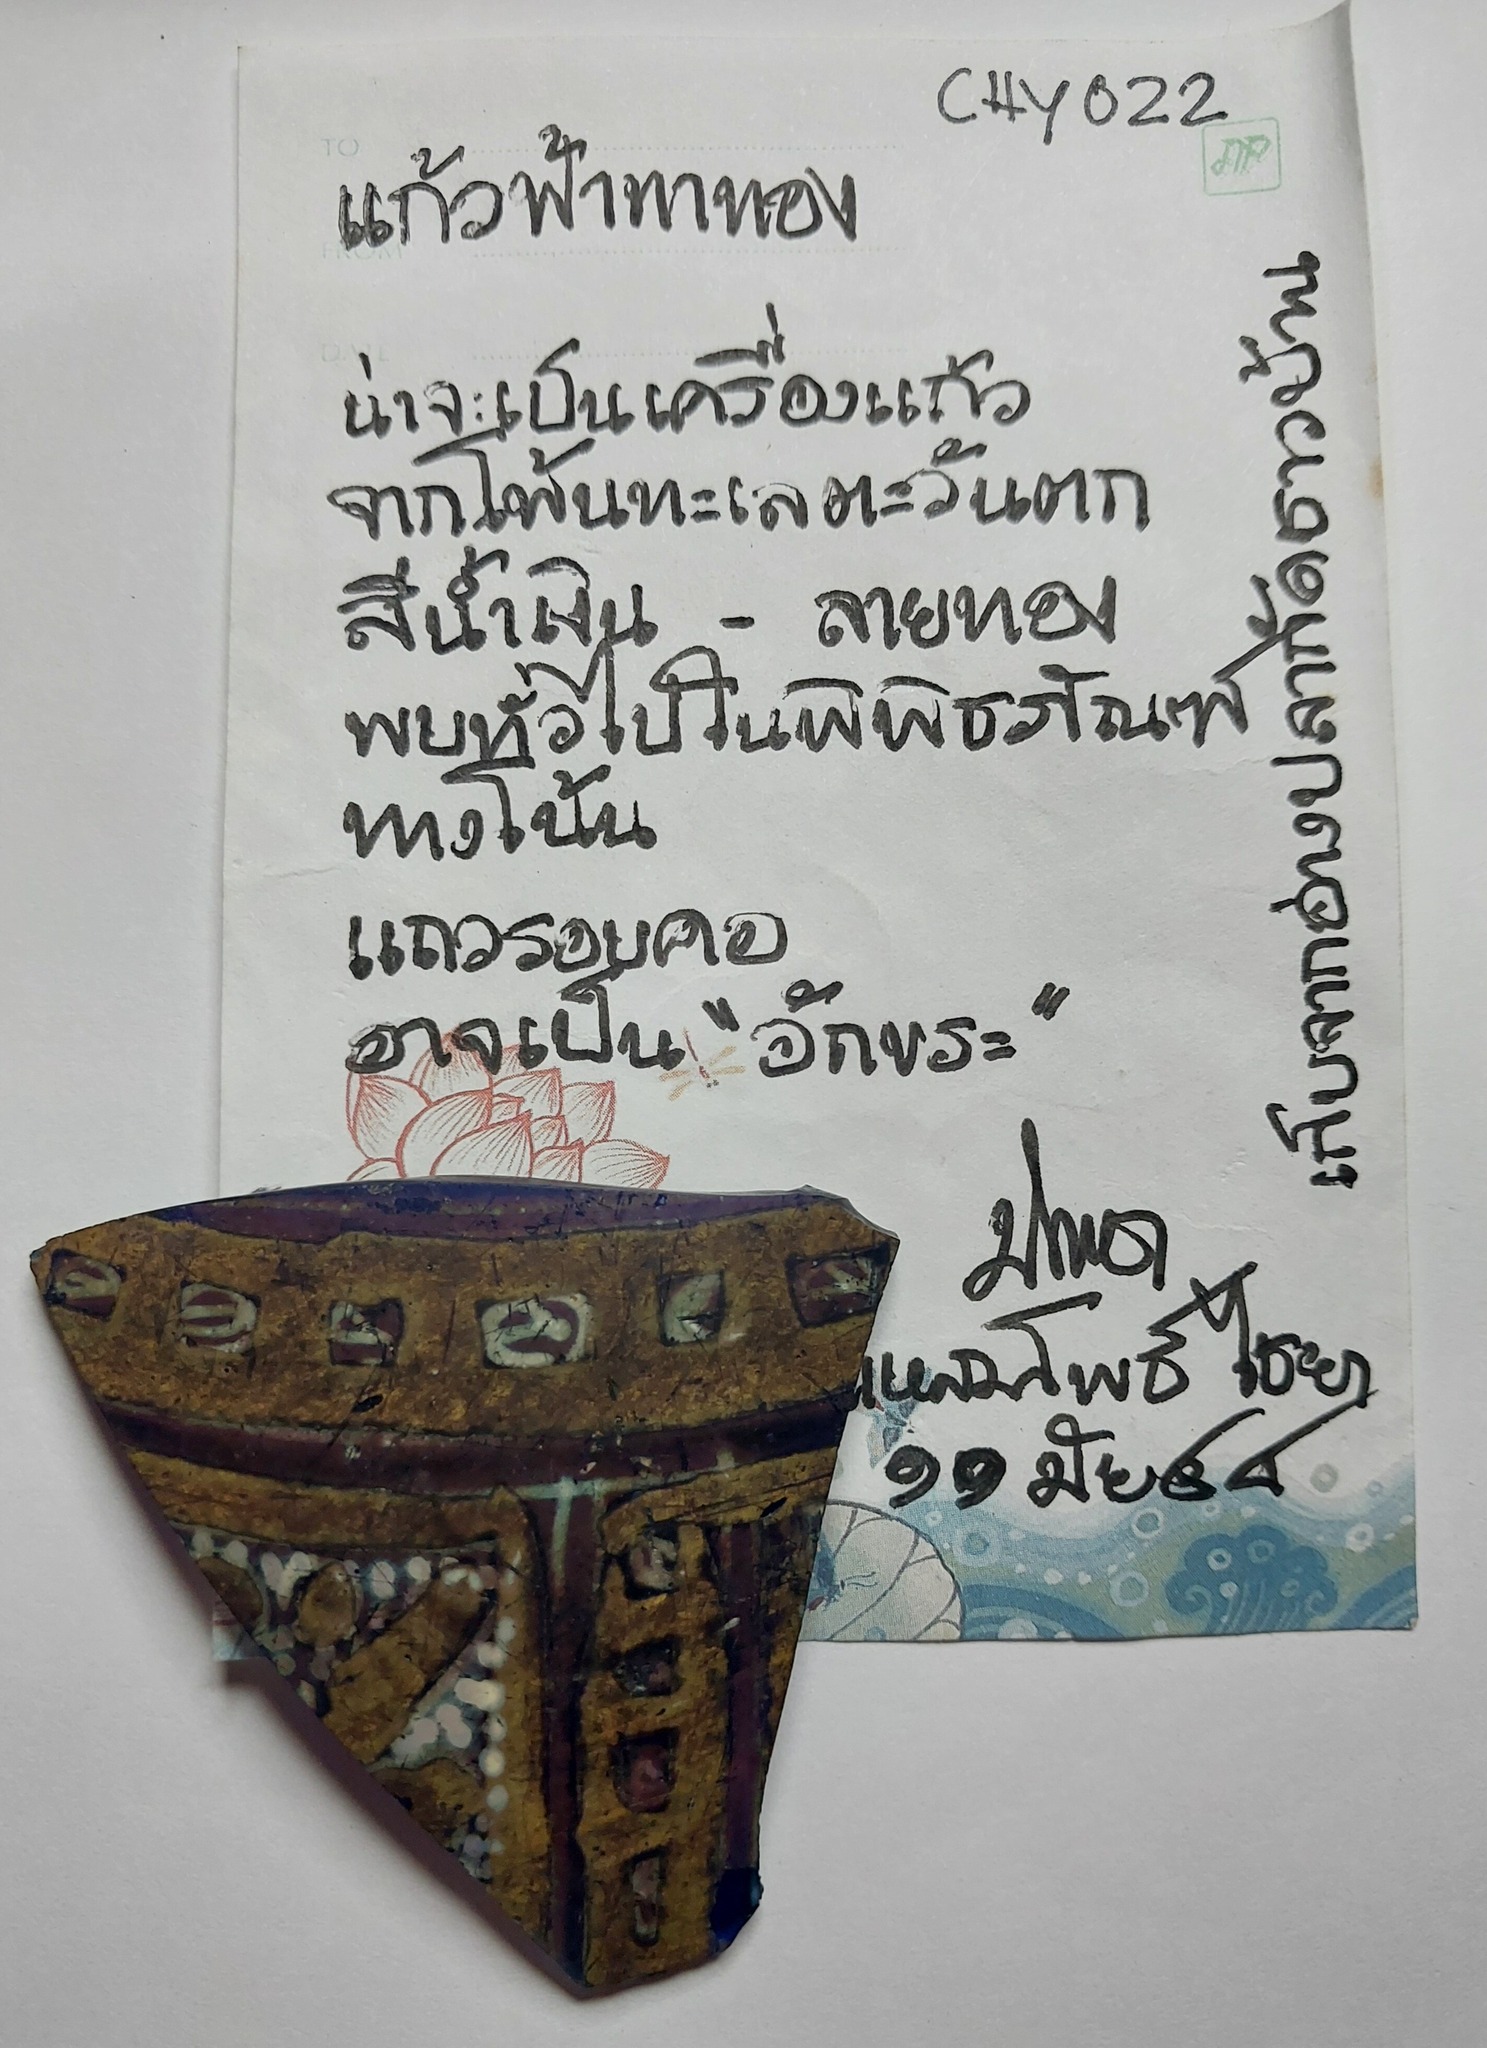 CHY022
TO
แก้วฟ้าทาทอง
FROM
DATE
น่าจะเป็นเครื่องแก้ว
จากโพ้นทะเลตะวันตก
สีน้ำเงิน - ลายทอง
พบทั่วไปในพิพิธภัณฑ์
ทางโน้น
แถวรอบคอ
อาจเป็น "อักขระ"
แหลมโพธิ์ ไชยา
๑๑ มีย ๕๔
เก็บจากอ่างปลาที่ดาวล้าน